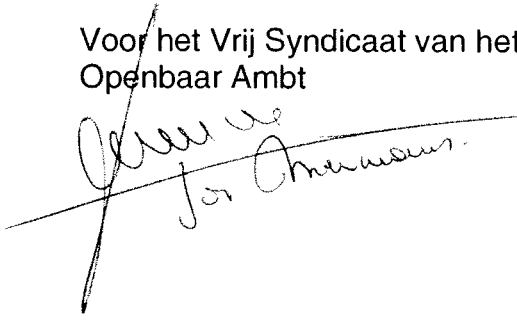 Voor het Vrij Syndicaat van het
Openbaar Ambt
Jos